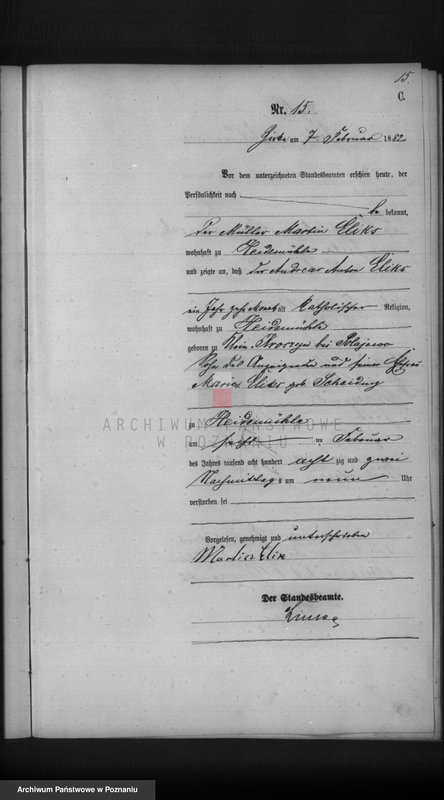 15.
C.
Nr. 15.
Zirke am 7. Februar 1882.
Vor dem unterzeichneten Standesbeamten erschien heute, der
Persönlichkeit nach
be kannt,
der Müller Martin Eliks
wohnhaft zu Heidemühle
und zeigte an, daß der Andreas Anton Eliks
ein Jahr zehn Monate katholischer Religion,
wohnhaft zu Heidemühle
geboren zu Klein Kroszyn bei Polajewo
Sohn des Anzeigenden und seiner Ehefrau
Maria Eliks geb.
zu Heidemühle
am sechs ten Februar
des Jahres tausend acht hundert acht zig und zwei
Nachmittags um neun Uhr
verstorben sei
Vorgelesen, genehmigt und unterschrieben
Martin Elix
Der Standesbeamte.
ARCHIWUM PAŃSTWOWE
W POZNANIU
Archiwum Państwowe w Poznaniu